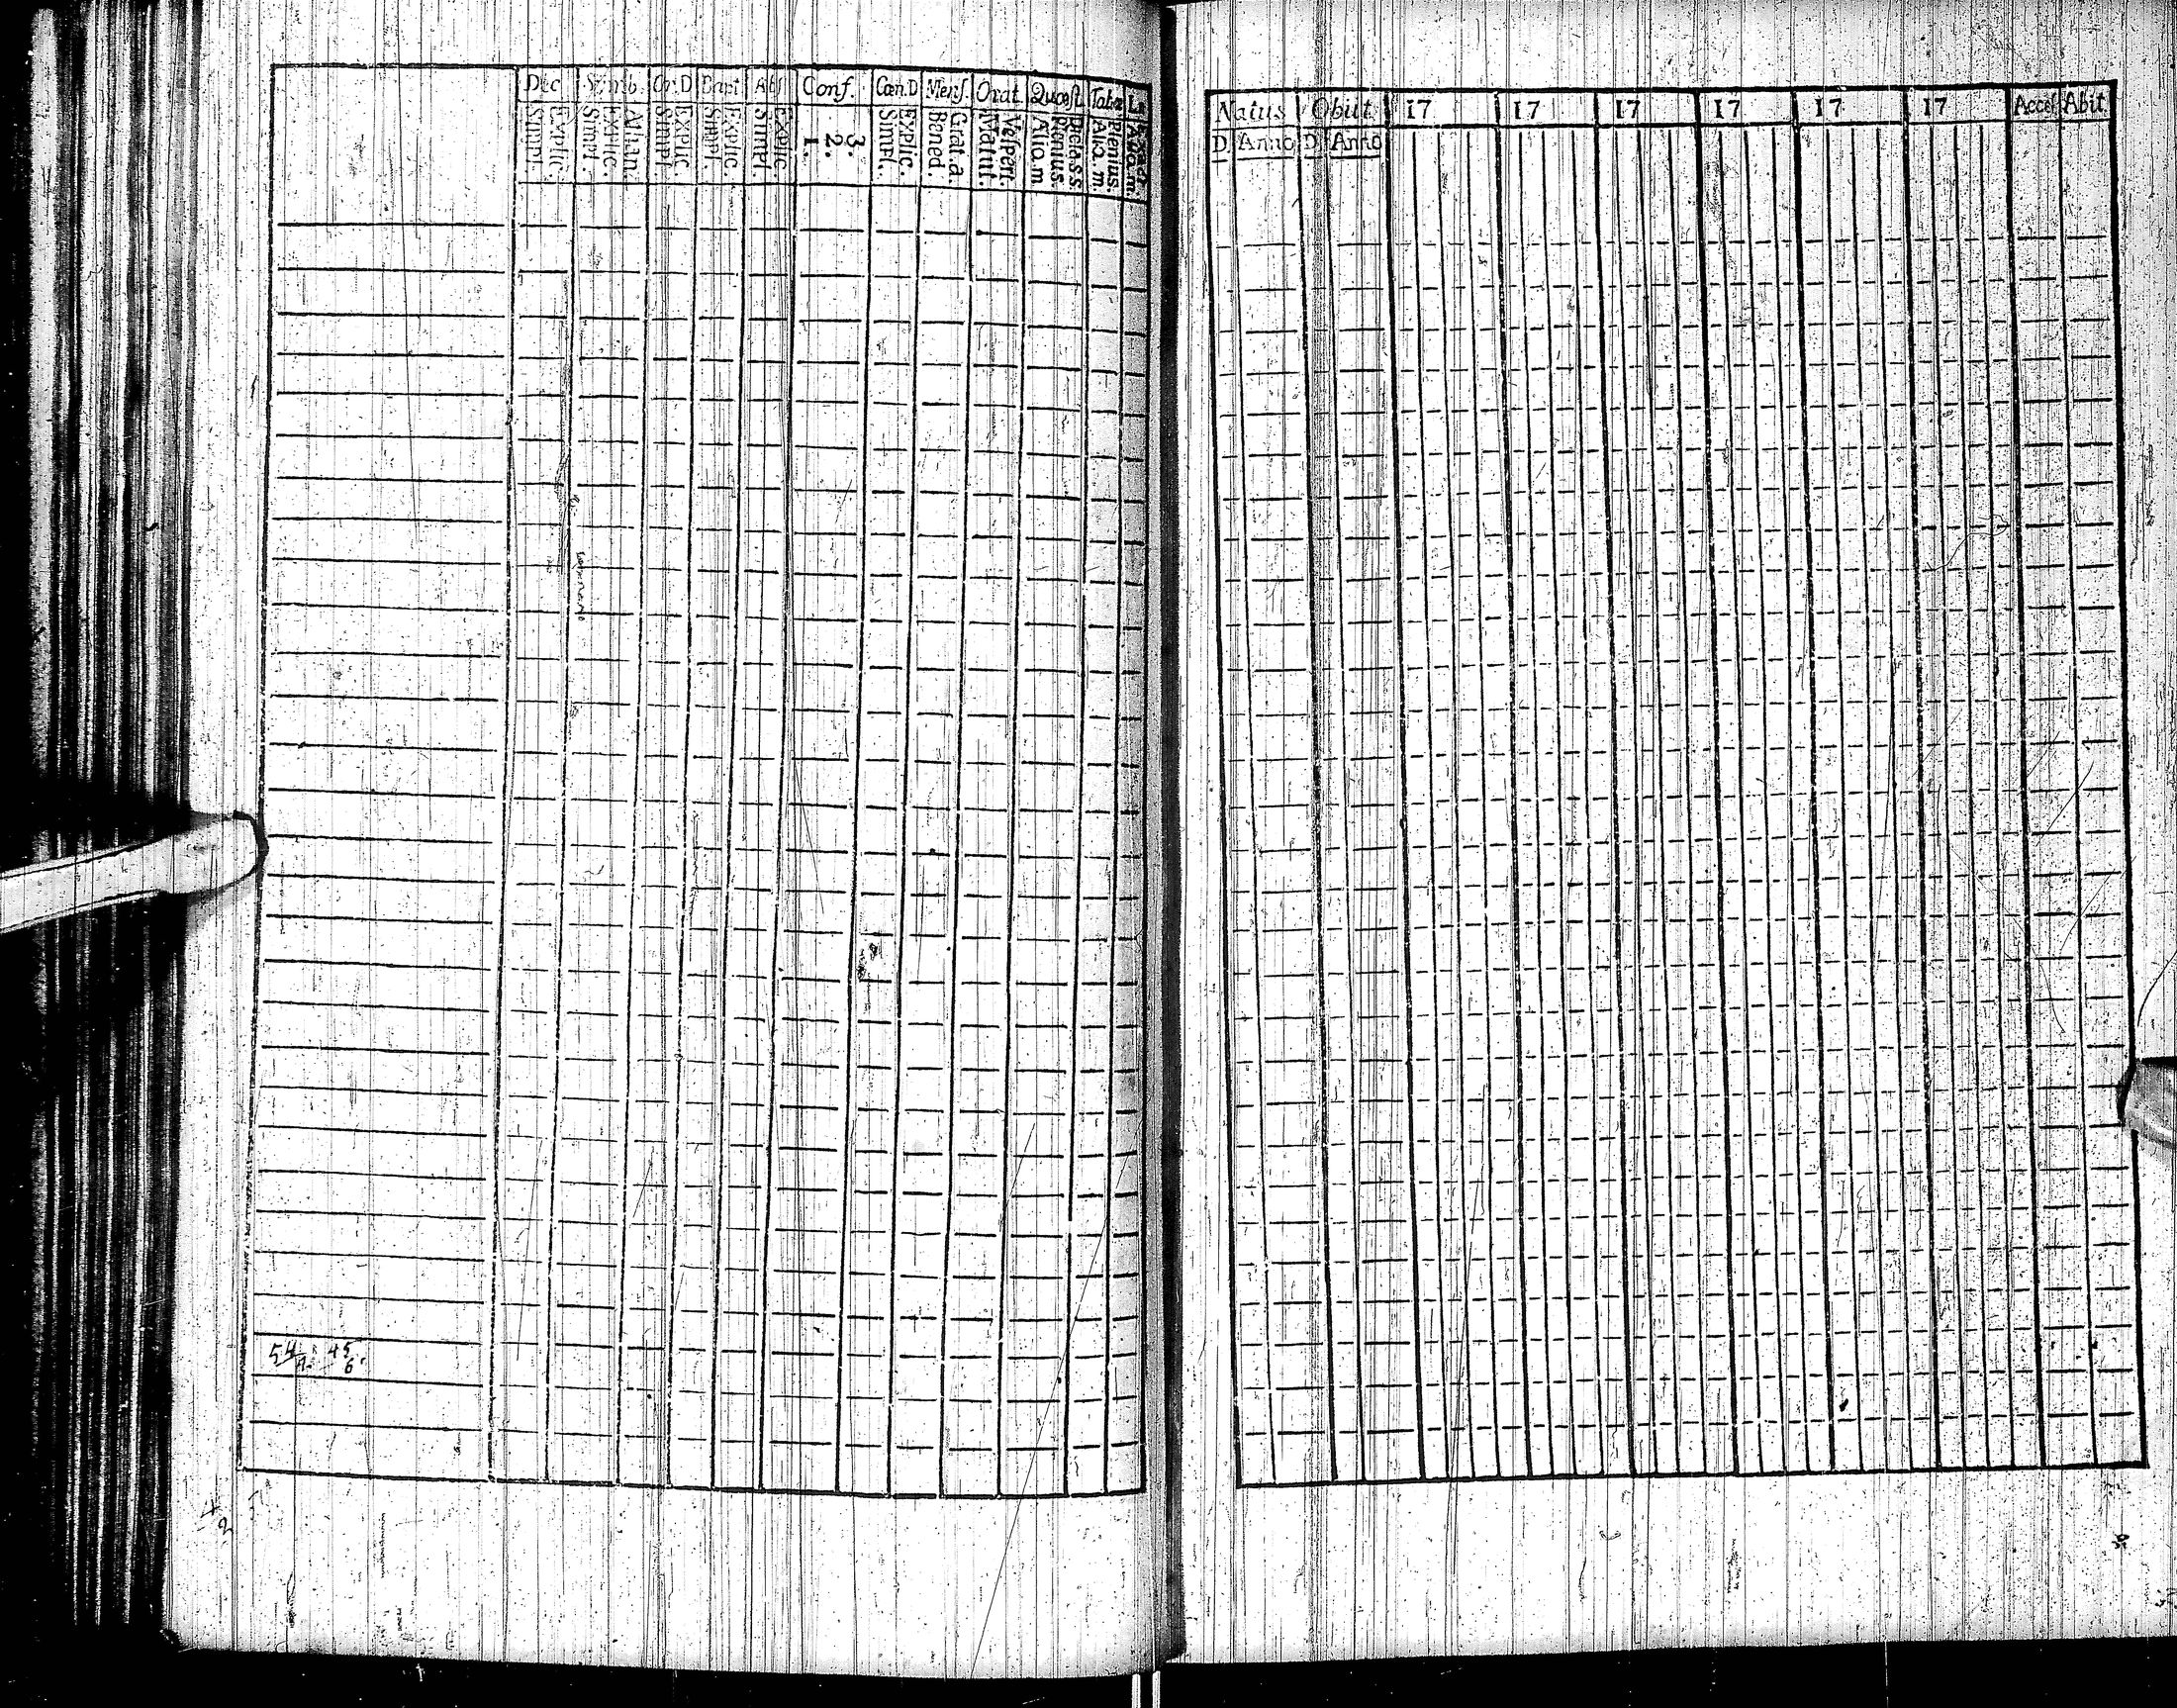 Dec Symb. Or. D Bapt Abs Conf. Cœn. D Mens. Orat. Quæst. Tabæ L
Explic. Simpl. Athan. Explic. Simpl. Explic. Simpl. Explic. Simpl. Explic. Simpl. 3. 2. 1. Explic. Simpl. Grat. a. Bened. Vespert. Matut. Dicta s.s. Plenius. Aliq. m Plenius. Aliq. m.
54 45
6
Natus Obiit 17 17 17 17 17 17 Acces Abit
D Anno D Anno